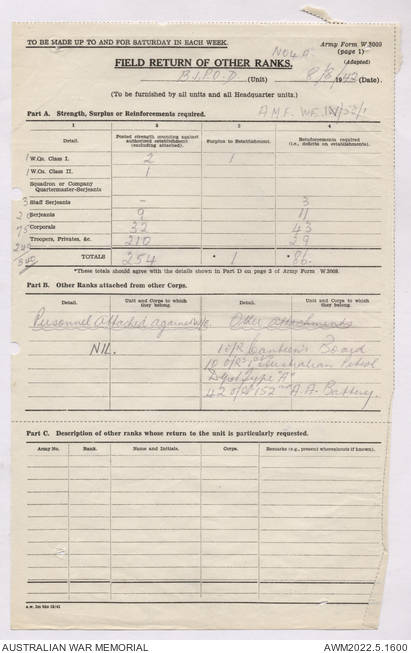 TO BE MADE UP TO AND FOR SATURDAY IN EACH WEEK.
Army Form W.3009
(page 1)
(Adapted)
FIELD RETURN OF OTHER RANKS.
B.I.P.O.D. (Unit) 8/8/1942 (Date).
(To be furnished by all units and all Headquarter units.)
Part A. Strength, Surplus or Reinforcements required.
A.M.F. W.E.
1 2 3 4
Detail. Posted strength counting against authorised establishment (excluding attached). Surplus to Establishment. Reinforcements required (i.e., deficits on establishments).
1 W.Os. Class I. 2 1
1 W.Os. Class II. 1
Squadron or Company Quartermaster-Serjeants
3 Staff Serjeants - 3
20 Serjeants 9 11
75 Corporals 32 43
Troopers, Privates, &c. 210 29
340 TOTALS 254 * 1 * 86.
*These totals should agree with the details shown in Part D on page 2 of Army Form W.3009.
Part B. Other Ranks attached from other Corps.
Detail. Unit and Corps to which they belong. Detail. Unit and Corps to which they belong.
Personnel attached against W/E. Other attachments
NIL. 1 O/R Canteen's Board
10 O/Rs 1st Australian Petrol
Type "A"
42 O/Rs 152nd A.A. Battery.
Part C. Description of other ranks whose return to the unit is particularly requested.
Army No. Rank. Name and Initials. Corps. Remarks (e.g., present whereabouts if known).
AUSTRALIAN WAR MEMORIAL AWM2022.5.1600